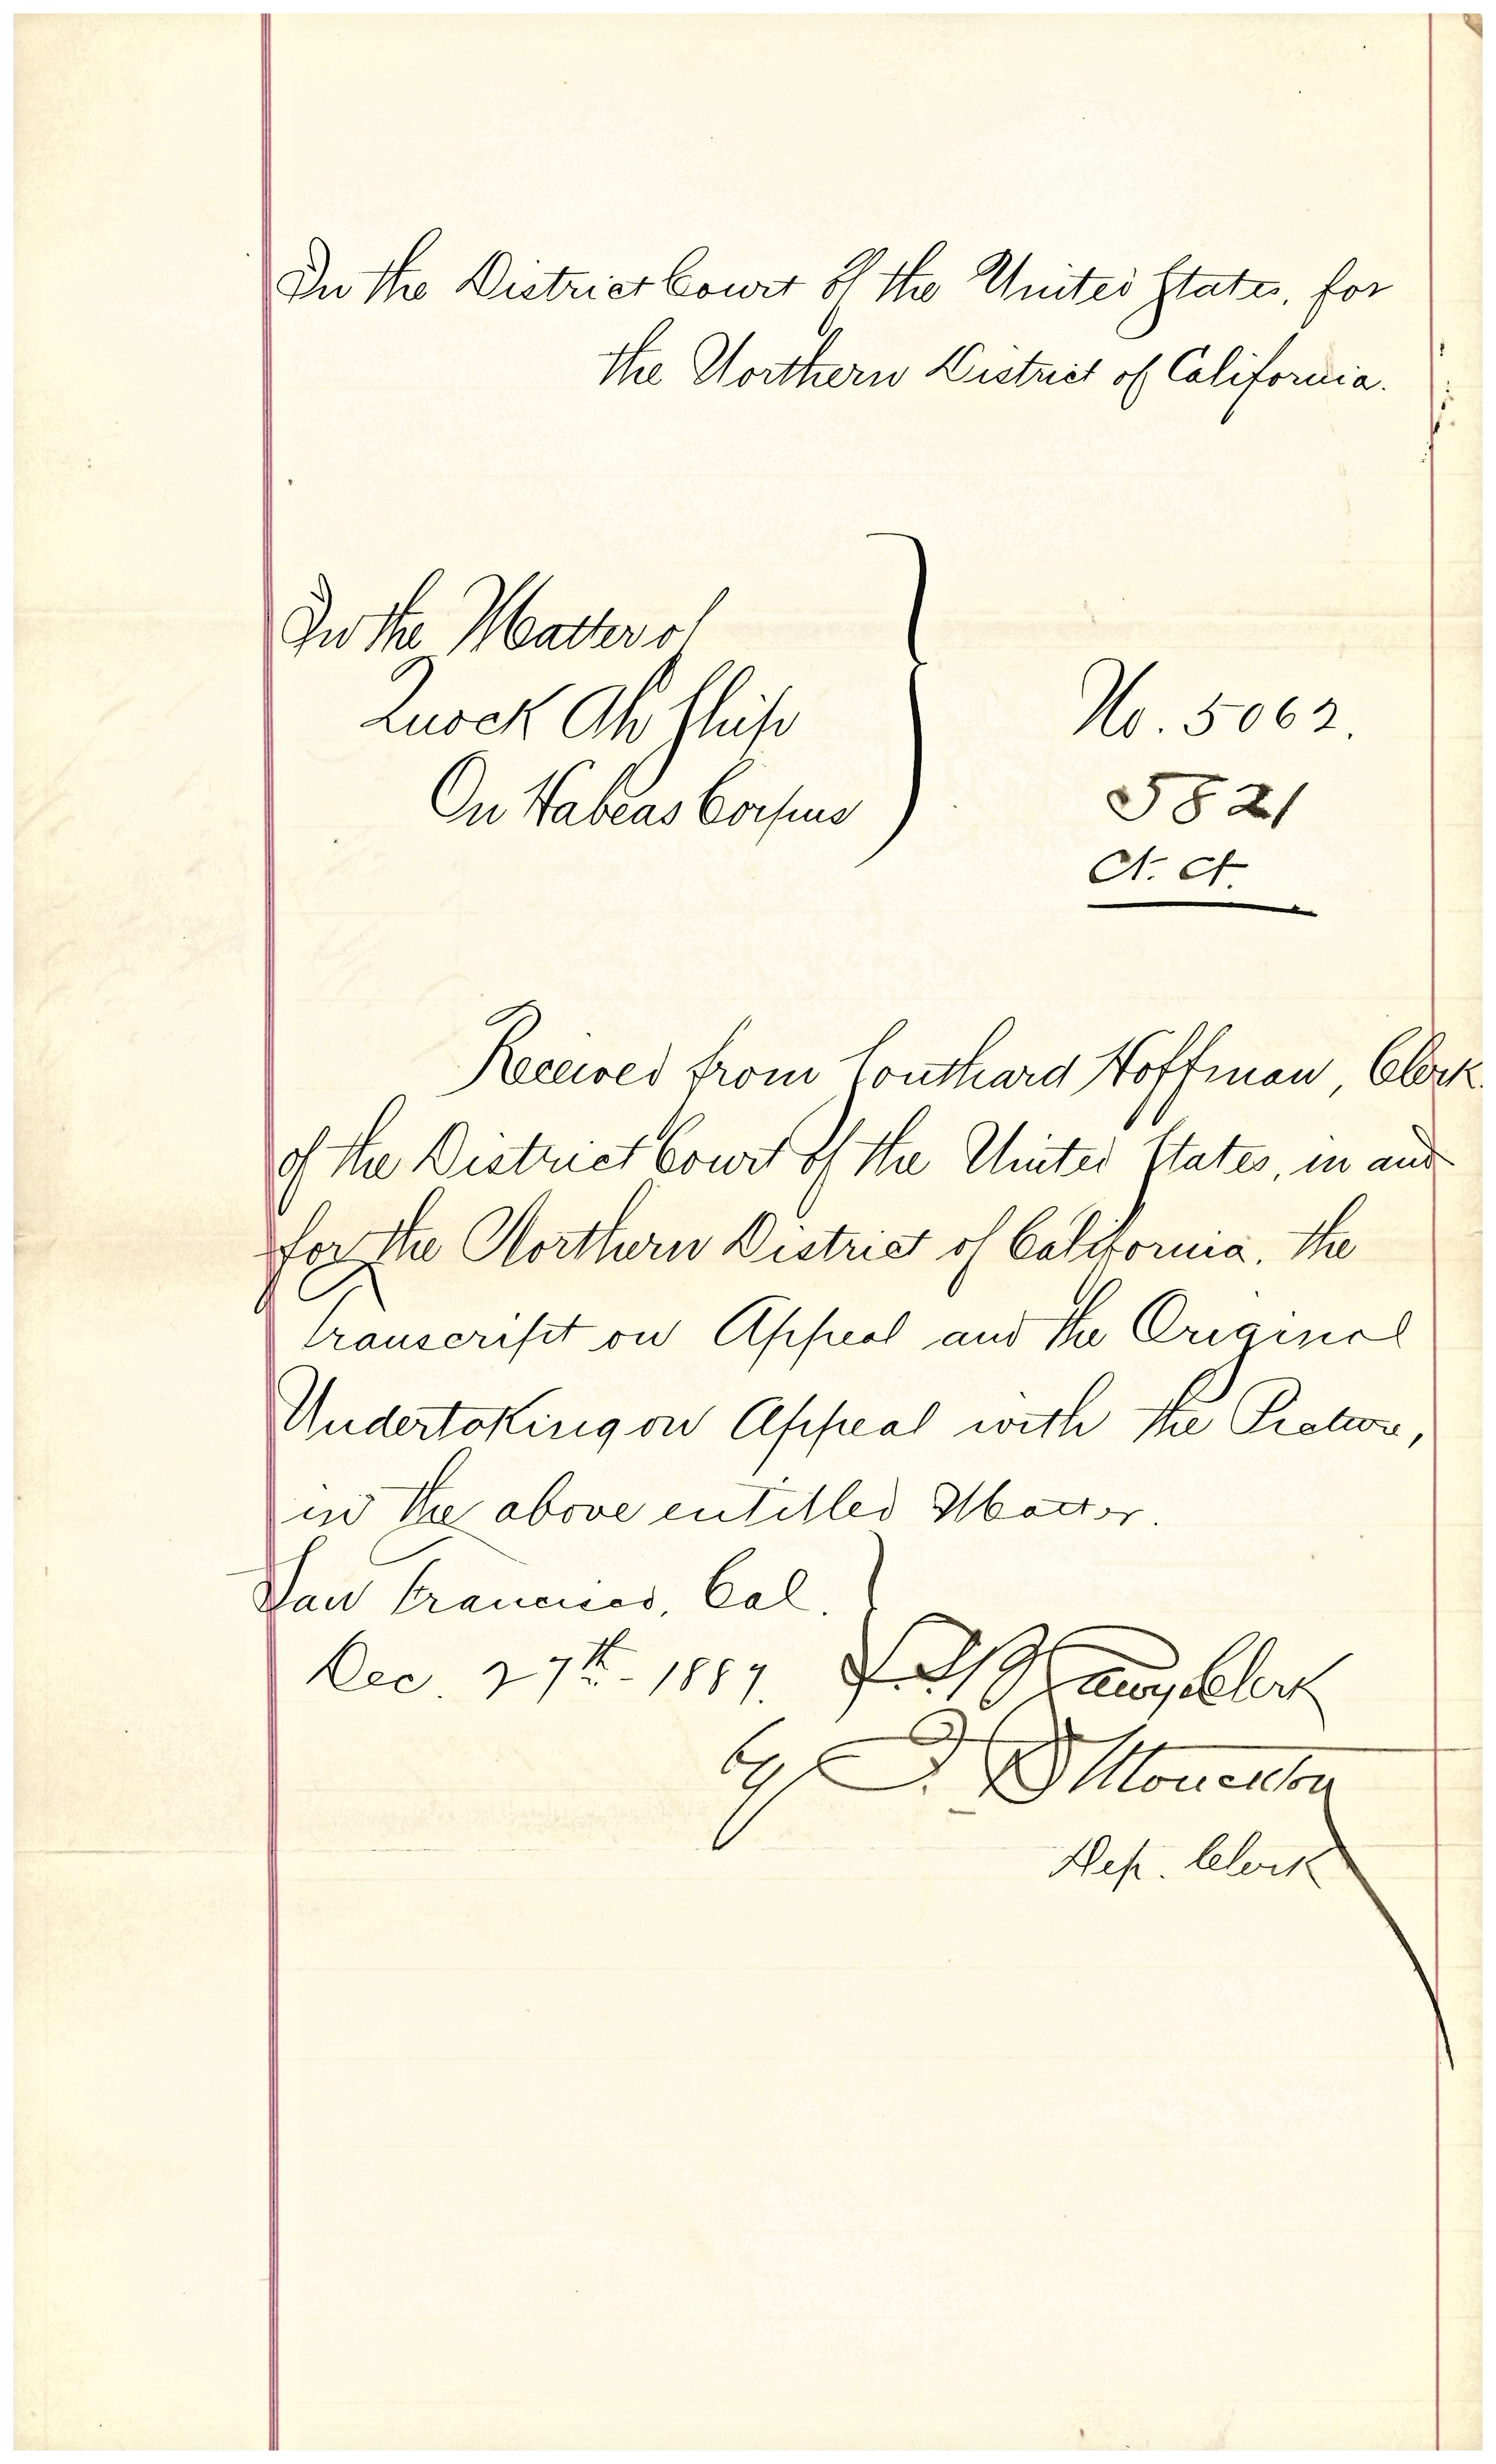 In the District Court of the United States, for
the Northern District of California.
In the Matter of
On Habeas Corpus
No. 5062.
5821
Received from Southard Hoffman, Clerk
of the District Court of the United States, in and
for the Northern District of California, the
transcript on Appeal and the Original
Undertaking on Appeal with the
in the above entitled Matter.
San Francisco, Cal.
Dec. 27th - 1887.
Clerk
by
Dep. Clerk